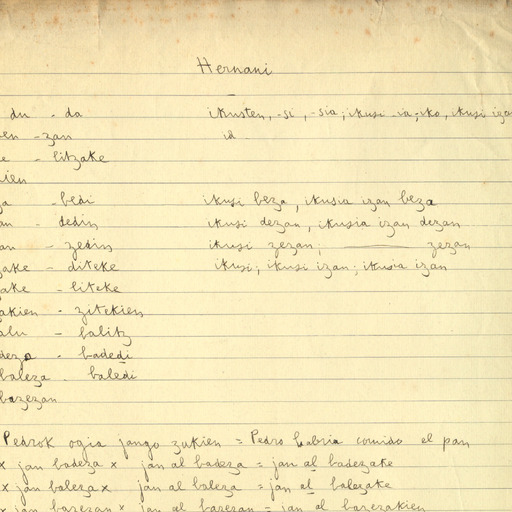 Hernani
du - da ikusten, -si, -sia; ikusi -ia; -ko, ikusi izan
en - zan id
e - litzake
ien
za - bedi ikusi beza, ikusia izan beza
an - dedin ikusi dezan, ikusia izan dezan
an - zedin ikusi zezan; ——— zezan
zake - diteke ikusi; ikusi izan; ikusia izan
ake - liteke
akien - zitekien
alu - balitz
deza - badedi
baleza - baledi
bazezan
Pedrok ogia jango zukien = Pedro habria comido el pan
x jan badeza x jan al badeza = jan al badezake
x jan baleza x jan al baleza = jan al balezake
x jan bazezan x jan al bazezan = jan al bazezakien